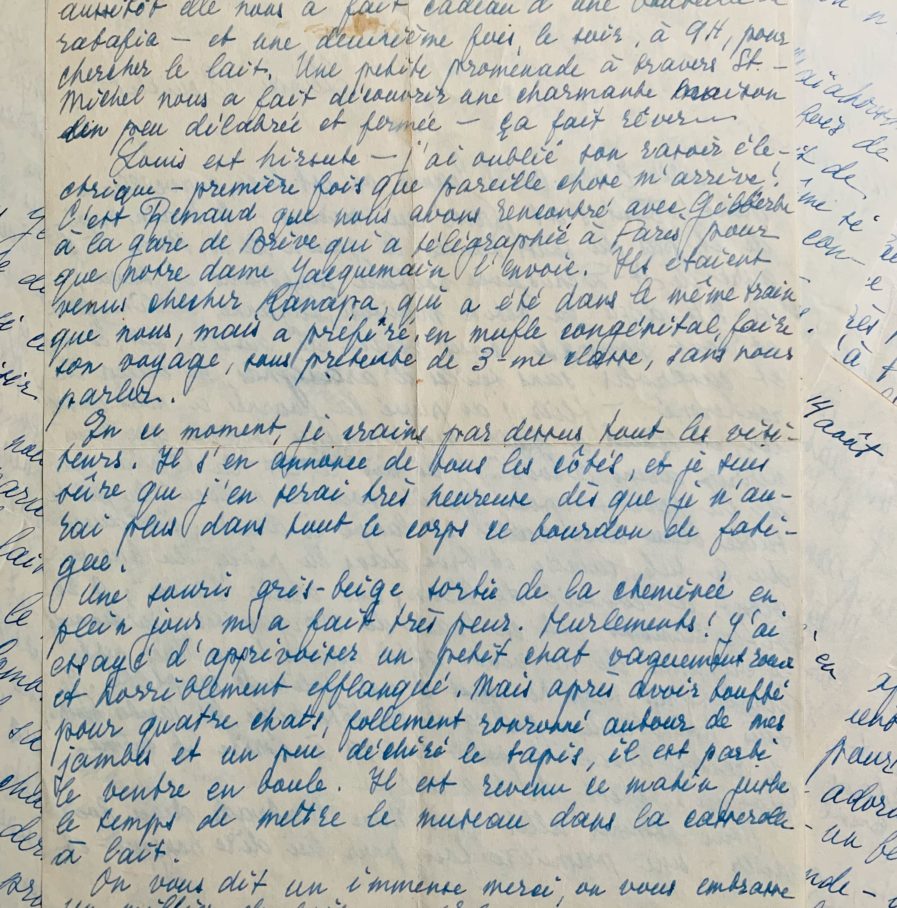 aussitôt elle nous a fait cadeau d'une bouteille
ratafia — et une deuxième fois, le soir, à 9H, pour
chercher le lait. Une petite promenade à travers St.-
Michel nous a fait découvrir une charmante maison
un peu délabrée et fermée — ça fait rêver —
Louis est hirsute — j'ai oublié son rasoir éle-
ctrique — première fois que pareille chose m'arrive!
C'est Renaud que nous avons rencontré avec Gilberte
à la gare de Brive qui a télégraphié à Paris pour
que notre dame Jacquemain l'envoie. Ils étaient
venus chercher Kanapa, qui a été dans le même train
que nous, mais a préféré, en mufle congénital, faire
son voyage, sous prétexte de 3-me classe, sans nous
parler.
En ce moment, je crains par dessus tout les visi-
teurs. Il s'en annonce de tous les côtés, et je suis
sûre que j'en serai très heureuse dès que je n'au-
rai plus dans tout le corps ce bourdon de fati-
gue!
Une souris gris-beige sortie de la cheminée en
plein jour m'a fait très peur. Hurlements! J'ai
essayé d'apprivoiser un petit chat vaguement roux
et horriblement efflanqué. Mais après avoir bouffé
pour quatre chats, follement ronronné autour de mes
jambes et un peu déchiré le tapis, il est parti
le ventre en boule. Il est revenu ce matin juste
le temps de mettre le museau dans la casserole
à lait.
On vous dit un immense merci, on vous embrasse
14 août
de
con-
(à
en
pour
-ador
- un
nde -